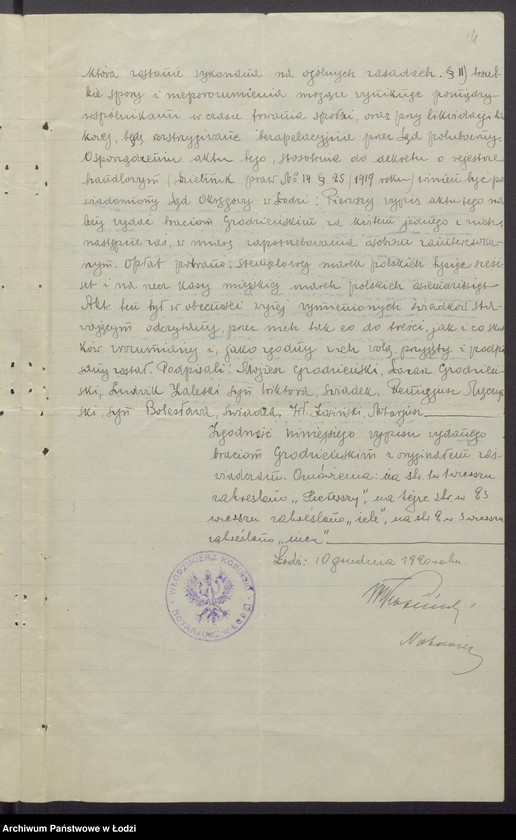 która zostanie wykonana na ogólnych zasadach. § 11) wszel-
kie spory i nieporozumienia mogące wyniknąć pomiędzy
wspólnikami w czasie trwania spółki, oraz przy likwidacji ta-
kowej, będą rozstrzygane bezapelacyjnie przez Sąd polubowny.
O sporządzeniu aktu tego, stosownie do dekretu o rejestrze
handlowym (Dziennik praw No 14 § 25/1919 roku) winien być po-
wiadomiony Sąd Okręgowy w Łodzi: Pierwszy wypis aktu tego na-
leży wydać braciom Grodzieńskim, za kwitem jednego z nich,
następne zaś, w miarę zapotrzebowania osobom zainteresowa-
nym. Opłat pobrano: stemplowej marek polskich tysiąc sześć-
set i na rzecz kasy miejskiej marek polskich
Akt ten był w obecności wyżej wymienionych świadków sta-
wającym odczytany, przez nich tak co do treści, jak i co skut-
ków zrozumiany i, jako zgodny z ich wolą przyjęty i podpi-
sany został. Podpisali: Mojżesz Grodzieński, Łazar Grodzień-
ski, Ludwik Zaleski syn Wiktora, świadek, Remigjusz
ski, syn Bolesława, świadek, Wł. Kosiński, Notarjusz
Zgodność niniejszego wypisu wydanego
braciom Grodzieńskim z oryginałem zaś-
wiadczam. Omówienia: na str. 1 w wierszu
zakreślono „Pierwszy", na tejże str. w 23
wierszu zakreślono „iele", na str. 2 w 3 wierszu
zakreślono
Łódź: 10 grudnia 1920 roku.
WKosiński
Notariusz
WŁODZIMIERZ KOSIŃSKI
NOTARJUSZ w ŁODZI
Archiwum Państwowe w Łodzi